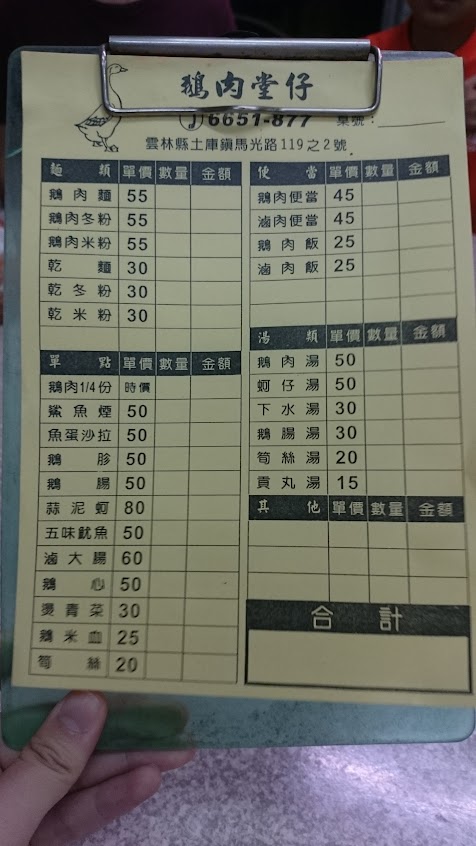 鵝肉堂仔
6651-877 桌號：
雲林縣土庫鎮馬光路119之2號
麵類 單價 數量 金額
鵝肉麵 55
鵝肉冬粉 55
鵝肉米粉 55
乾麵 30
乾冬粉 30
乾米粉 30
單點 單價 數量 金額
鵝肉1/4份 時價
鯊魚煙 50
魚蛋沙拉 50
鵝胗 50
鵝腸 50
蒜泥蚵 80
五味魷魚 50
滷大腸 60
鵝心 50
燙青菜 30
鵝米血 25
筍絲 20
便當 單價 數量 金額
鵝肉便當 45
滷肉便當 45
鵝肉飯 25
滷肉飯 25
湯類 單價 數量 金額
鵝肉湯 50
蚵仔湯 50
下水湯 30
鵝腸湯 30
筍絲湯 20
貢丸湯 15
其他 單價 數量 金額
合計